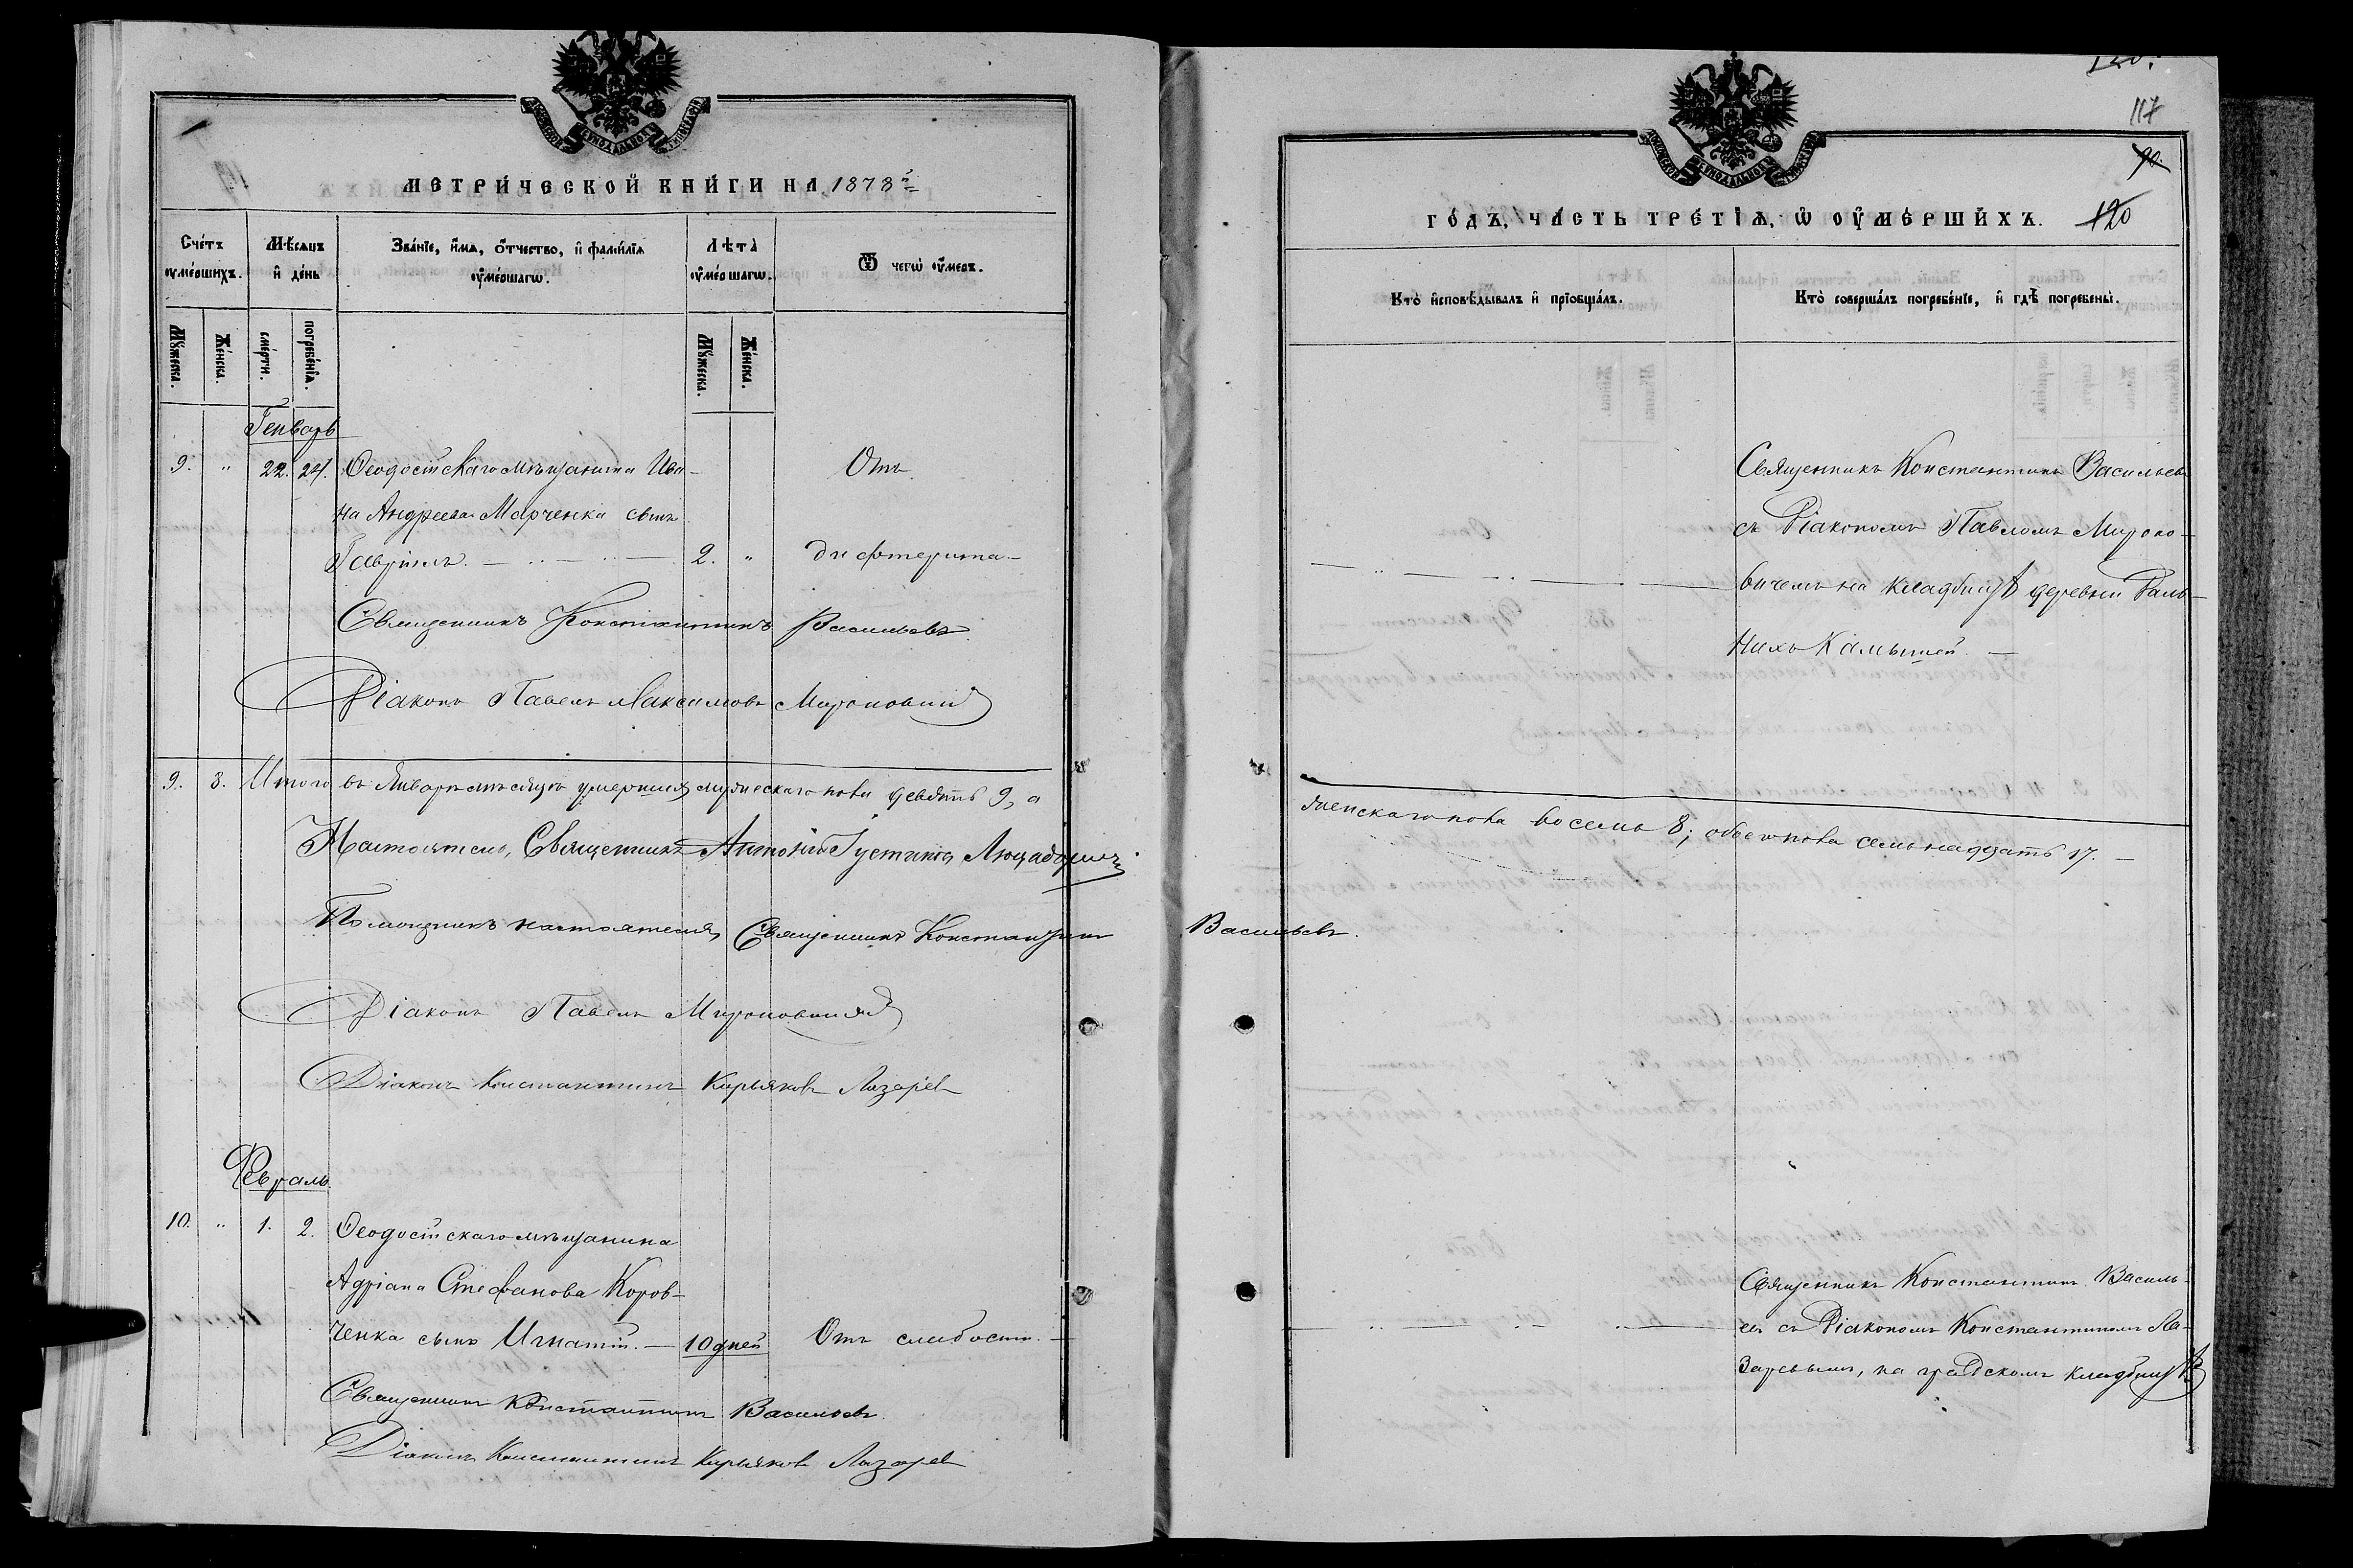 МЕТРИ́ЧЕСКОЙ КНИ́ГИ НА 1878й
Сче́тъ ᲂу҆ме́ршихъ.
Мѣ́сяцъ и҆ де́нь
Зва́нїе, и҆́мѧ, ѻ҆́тчество, и҆ фами́лїѧ ᲂу҆ме́ршагѡ.
Лѣта̀ ᲂу҆ме́ршагѡ.
Ѿ чегѡ̀ ᲂу҆́меръ.
Мꙋ́жеска.
Же́нска.
сме́рти.
погребе́нїѧ.
Мꙋ́жеска.
Же́нска.
Генварь
9. " 22. 24. Ѳеодосійскаго мѣщанина Ива- Отъ
на Андреева Марченка сынъ
Гавріилъ. 2. " дифтерита
Священникъ Константинъ Васильевъ
Діаконъ Павелъ Максимовъ Мироновичъ
9. 8. Итого въ Январѣ мѣсяцѣ умершихъ мужескаго пола девять 9, а
Настоятель, Священникъ Антоній
Помощникъ настоятеля, Священникъ Константинъ Васильевъ.
Діаконъ Павелъ Мироновичъ
Діаконъ Константинъ Кирьяковъ Лазаревъ
Февраль.
10. " 1. 2. Ѳеодосійскаго мѣщанина
Адріана Стефанова Коров-
ченка сынъ Игнатій. 10 дней Отъ слабости.
Священникъ Константинъ Васильевъ.
Діаконъ Константинъ Кирьяковъ Лазаревъ
120.
117
90.
ГО́ДЪ, ЧА́СТЬ ТРЕ́ТЇѦ, Ѡ҆ ОУ҆МЕ́РШИХЪ. 120
Кто̀ и҆сповѣ́дывалъ и҆ прїобща́лъ.
Кто̀ соверша́лъ погребе́нїе, и҆ гдѣ̀ погребены̀.
Священникъ Константинъ Васильевъ
съ Діакономъ Павломъ Мироно-
вичемъ на кладбищѣ деревни Даль-
нихъ Камышей.
женскаго пола восемь 8; обоего пола семьнадцать 17.
Священникъ Константинъ Василь-
евъ съ Діакономъ Константиномъ Ла-
заревымъ, на градскомъ кладбищѣ